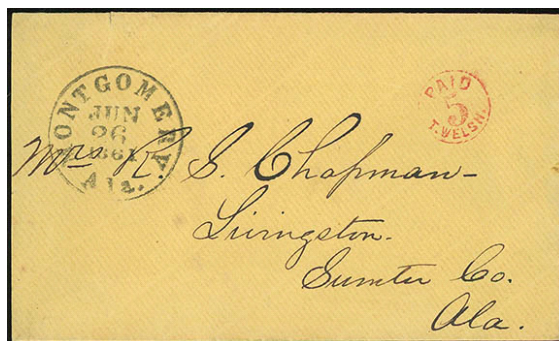 MONTGOMERY
JUN
26
1861
Ala.
PAID
5
T. WELSH.
Mrs R. S. Chapman-
Livingston.
Sumter Co.
Ala.